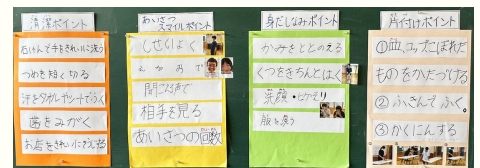 清潔ポイント
石けんで手をきれいに洗う
つめを短く切る
汗をタオルやシートでふく
歯をみがく
お唇をきれいにする
あいさつ
スマイルポイント
しせいよく
えがおで
聞こえる声で
相手を見る
あいさつの回数
身だしなみポイント
かみをととのえる
くつをきちんとはく
笑顔・
服を
片付けポイント
①皿、コップにこぼれた
ものをかたづける
②ふきんでふく。
③かくにんする